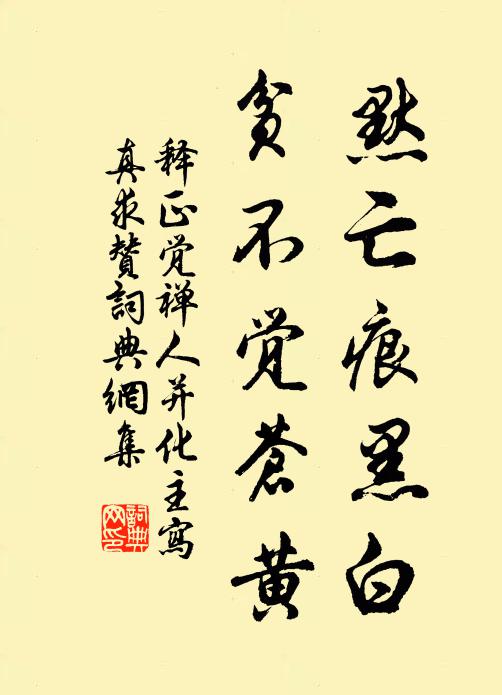 默亡痕黑白
贫不觉苍黄
释正觉禅人并化主写
真求赞词典网集
词典网印